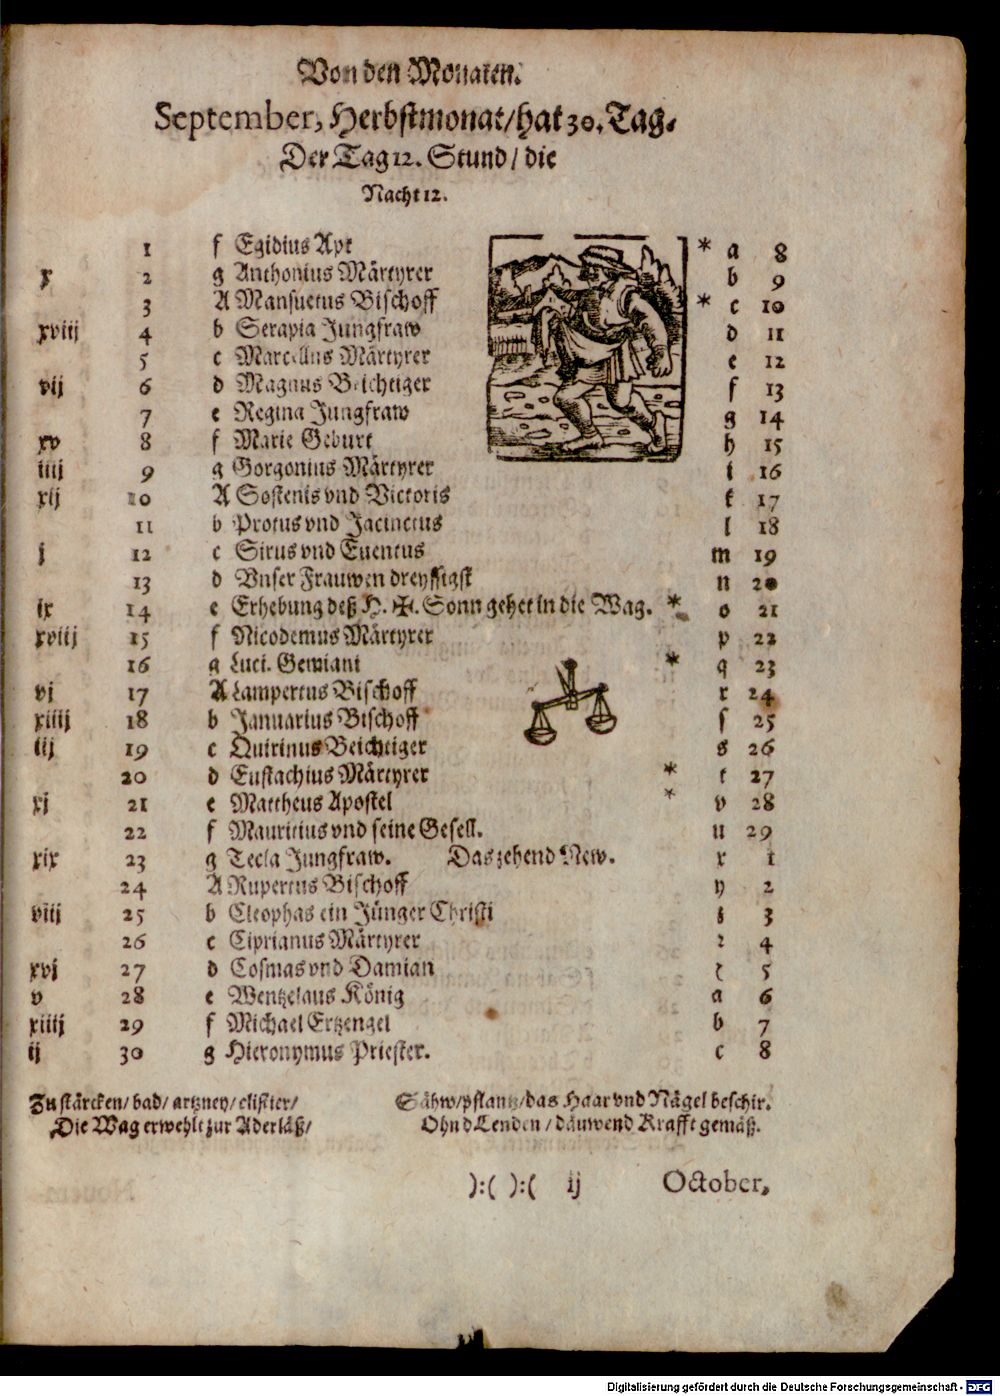 Von den Monaten.
September, Herbstmonat/hat 30. Tag.
Der Tag 12. Stund/ die
Nacht 12.
1 f Egidius Apt * a 8
x 2 g Anthonius Märtyrer b 9
3 A Mansuetus Bischoff * c 10
xviij 4 b Serapia Jungfraw d 11
5 c Marcellus Märtyrer e 12
vij 6 d Magnus Beichtiger f 13
7 e Regina Jungfraw g 14
xv 8 f Marie Geburt h 15
iiij 9 g Gorgonius Märtyrer i 16
xij 10 A Sostenis vnd Victoris k 17
11 b Protus vnd Jacinctus l 18
j 12 c Sirus vnd Euentus m 19
13 d Vnser Frauwen dreyssigst n 20
ix 14 e Erhebung deß H. ✠. Sonn gehet in die Wag. * o 21
xviij 15 f Nicodemus Märtyrer p 22
16 g Luci. Gemiani * q 23
vj 17 A Lampertus Bischoff r 24
xiiij 18 b Januarius Bischoff ſ 25
iij 19 c Quirinus Beichtiger s 26
20 d Eustachius Märtyrer * t 27
xj 21 e Mattheus Apostel * v 28
22 f Mauritius vnd seine Gesell. u 29
xix 23 g Tecla Jungfraw. Das zehend New. x 1
24 A Rupertus Bischoff y 2
viij 25 b Cleophas ein Jünger Christi z 3
26 c Ciprianus Märtyrer 4
xvj 27 d Cosmas vnd Damian 5
v 28 e Wentzelaus König a 6
xiiij 29 f Michael Ertzengel b 7
ij 30 g Hieronymus Priester. c 8
Zu stärcken/ bad/ artzney/ clistier/
Die Wag erwehlt zur Aderläß/
Sähw/pflantz/das Haar vnd Nägel beschir.
Ohn d Lenden/ däuwend Krafft gemäß.
):( ):( ij October,
Digitalisierung gefördert durch die Deutsche Forschungsgemeinschaft - DFG